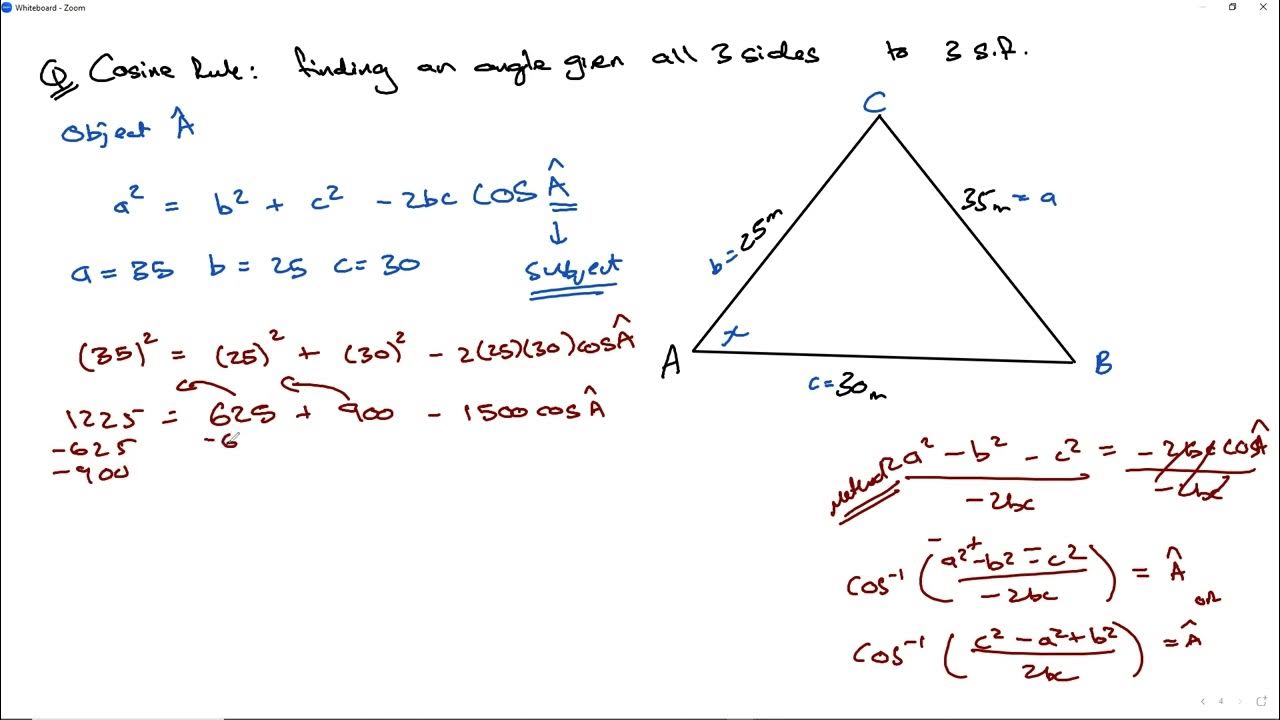 Whiteboard - Zoom
Q Cosine Rule: finding an angle given all 3 sides to 3 s.f.
Object Â
a² = b² + c² - 2bc cos Â
↓
subject
a = 35 b = 25 c = 30
(35)² = (25)² + (30)² - 2(25)(30)cosÂ
1225 = 625 + 900 - 1500 cosÂ
-625 -6
-900
C
35m = a
b = 25m
x
A
B
c = 30m
Method 2 a² - b² - c² = -2bc cosÂ
-2bc -2bc
cos⁻¹ (-a² + -b² = c² / -2bc) = Â
or
cos⁻¹ (c² - a² + b² / 2bc) = Â
4